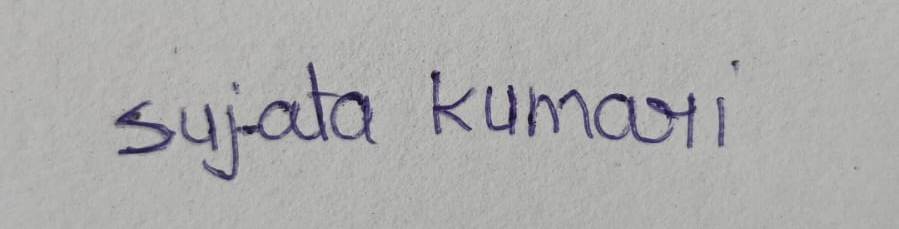 sujata kumari